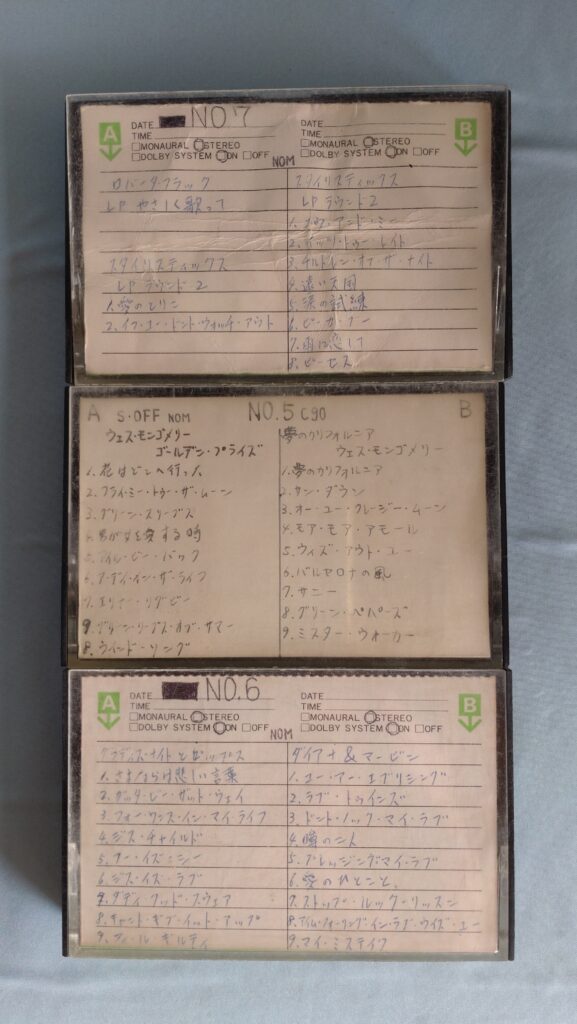 A
DATE NO7
TIME
□MONAURAL □STEREO
□DOLBY SYSTEM □ON □OFF
DATE
TIME
□MONAURAL □STEREO
□DOLBY SYSTEM □ON □OFF
B
NOM
ロバータ・フラック
LP やさしく歌って
スタイリスティックス
LP ラウンド2
1.愛のとりこ
2.イフ・ユー・ドント・ウォッチ・アウト
スタイリスティックス
LP ラウンド2
3.チルドレン・オブ・ザ・ナイト
4.遠い天国
5.涙の試練
6.ピーカブー
7.雨に恋して
8.ピーセス
A S・OFF NOM NO.5 C90 B
ウェス・モンゴメリー
ゴールデン・プライズ
1.花はどこへ行った
2.フライ・ミー・トゥー・ザ・ムーン
3.グリーン・スリーブス
4.男が女を愛する時
5.アイル・ビー・バック
6.ア・デイ・イン・ザ・ライフ
7.エリナー・リグビー
9.グリーン・リーブス・オブ・サマー
8.ウインド・ソング
夢のカリフォルニア
ウェス・モンゴメリー
1.夢のカリフォルニア
2.サン・ダウン
3.オー・ユー・クレージー・ムーン
4.モア・モア・アモール
5.ウィズ・アウト・ユー
6.バルセロナの風
7.サニー
8.グリーン・ペパーズ
9.ミスター・ウォーカー
A
DATE NO.6
TIME
□MONAURAL □STEREO
□DOLBY SYSTEM □ON □OFF
DATE
TIME
□MONAURAL □STEREO
□DOLBY SYSTEM □ON □OFF
B
NOM
グラディス・ナイトとピップス
1.さよならは悲しい言葉
2.ガッタ・ビー・ザット・ウェイ
3.フォー・ワンス・イン・マイ・ライフ
4.ジス・チャイルド
5.フー・イズ・シー
6.ジス・イズ・ラブ
7.ダディ・クッド・スウェア
8.キャント・ギブ・イット・アップ
9.フィール・ギルティ
ダイアナ&マービン
1.ユー・アー・エブリシング
2.ラブ・トゥインズ
3.ドント・ノック・マイ・ラブ
4.瞳の二人
5.プレッジングマイ・ラブ
6.愛のひとこと
7.ストップ・ルック・リッスン
8.アイム・フォーリング・イン・ラブ・ウイズ・ユー
9.マイ・ミステイク